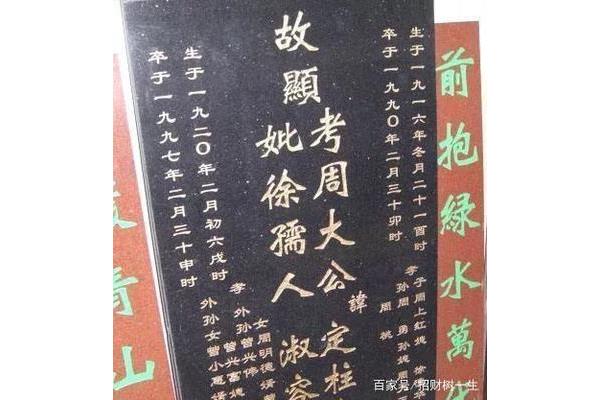 前抱綠水萬
生于一九一六年冬月二十一酉时
卒于一九九〇年二月三十卯时
故顯
考周大公諱定柱
妣徐孺人淑容
生于一九二〇年二月初六戌时
卒于一九九七年二月三十申时
孝子周上红媳徐
孙周勇孙媳周
周桃
孝女周明德婿曾
外孙曾兴伟
曾兴富媳
外孙女曾小惠婿
青山
百家号/招财树一生